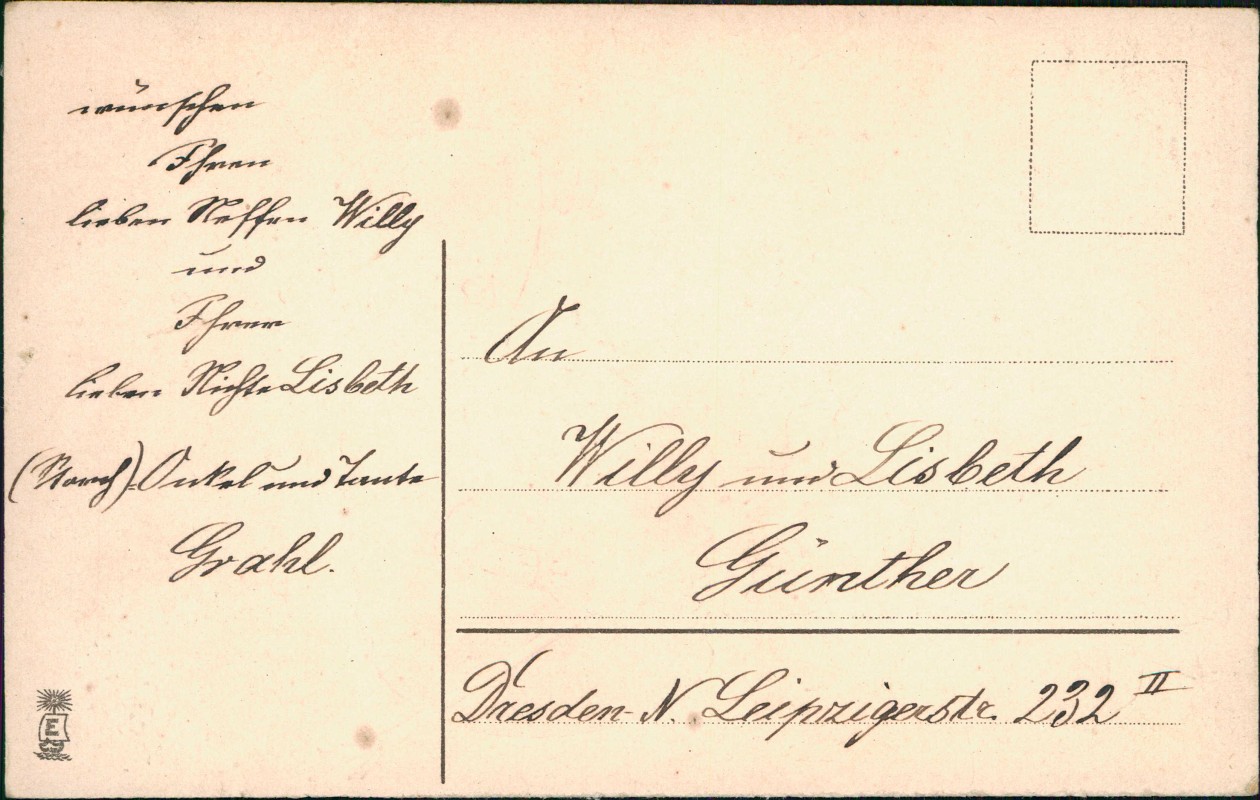 wünschen
Ihren
lieben Neffen Willy
und
Ihrer
lieben Nichte Lisbeth
(Storch) Onkel und Tante
Grahl.
E
An
Willy und Lisbeth
Günther
Dresden-N. Leipzigerstr. 232 II